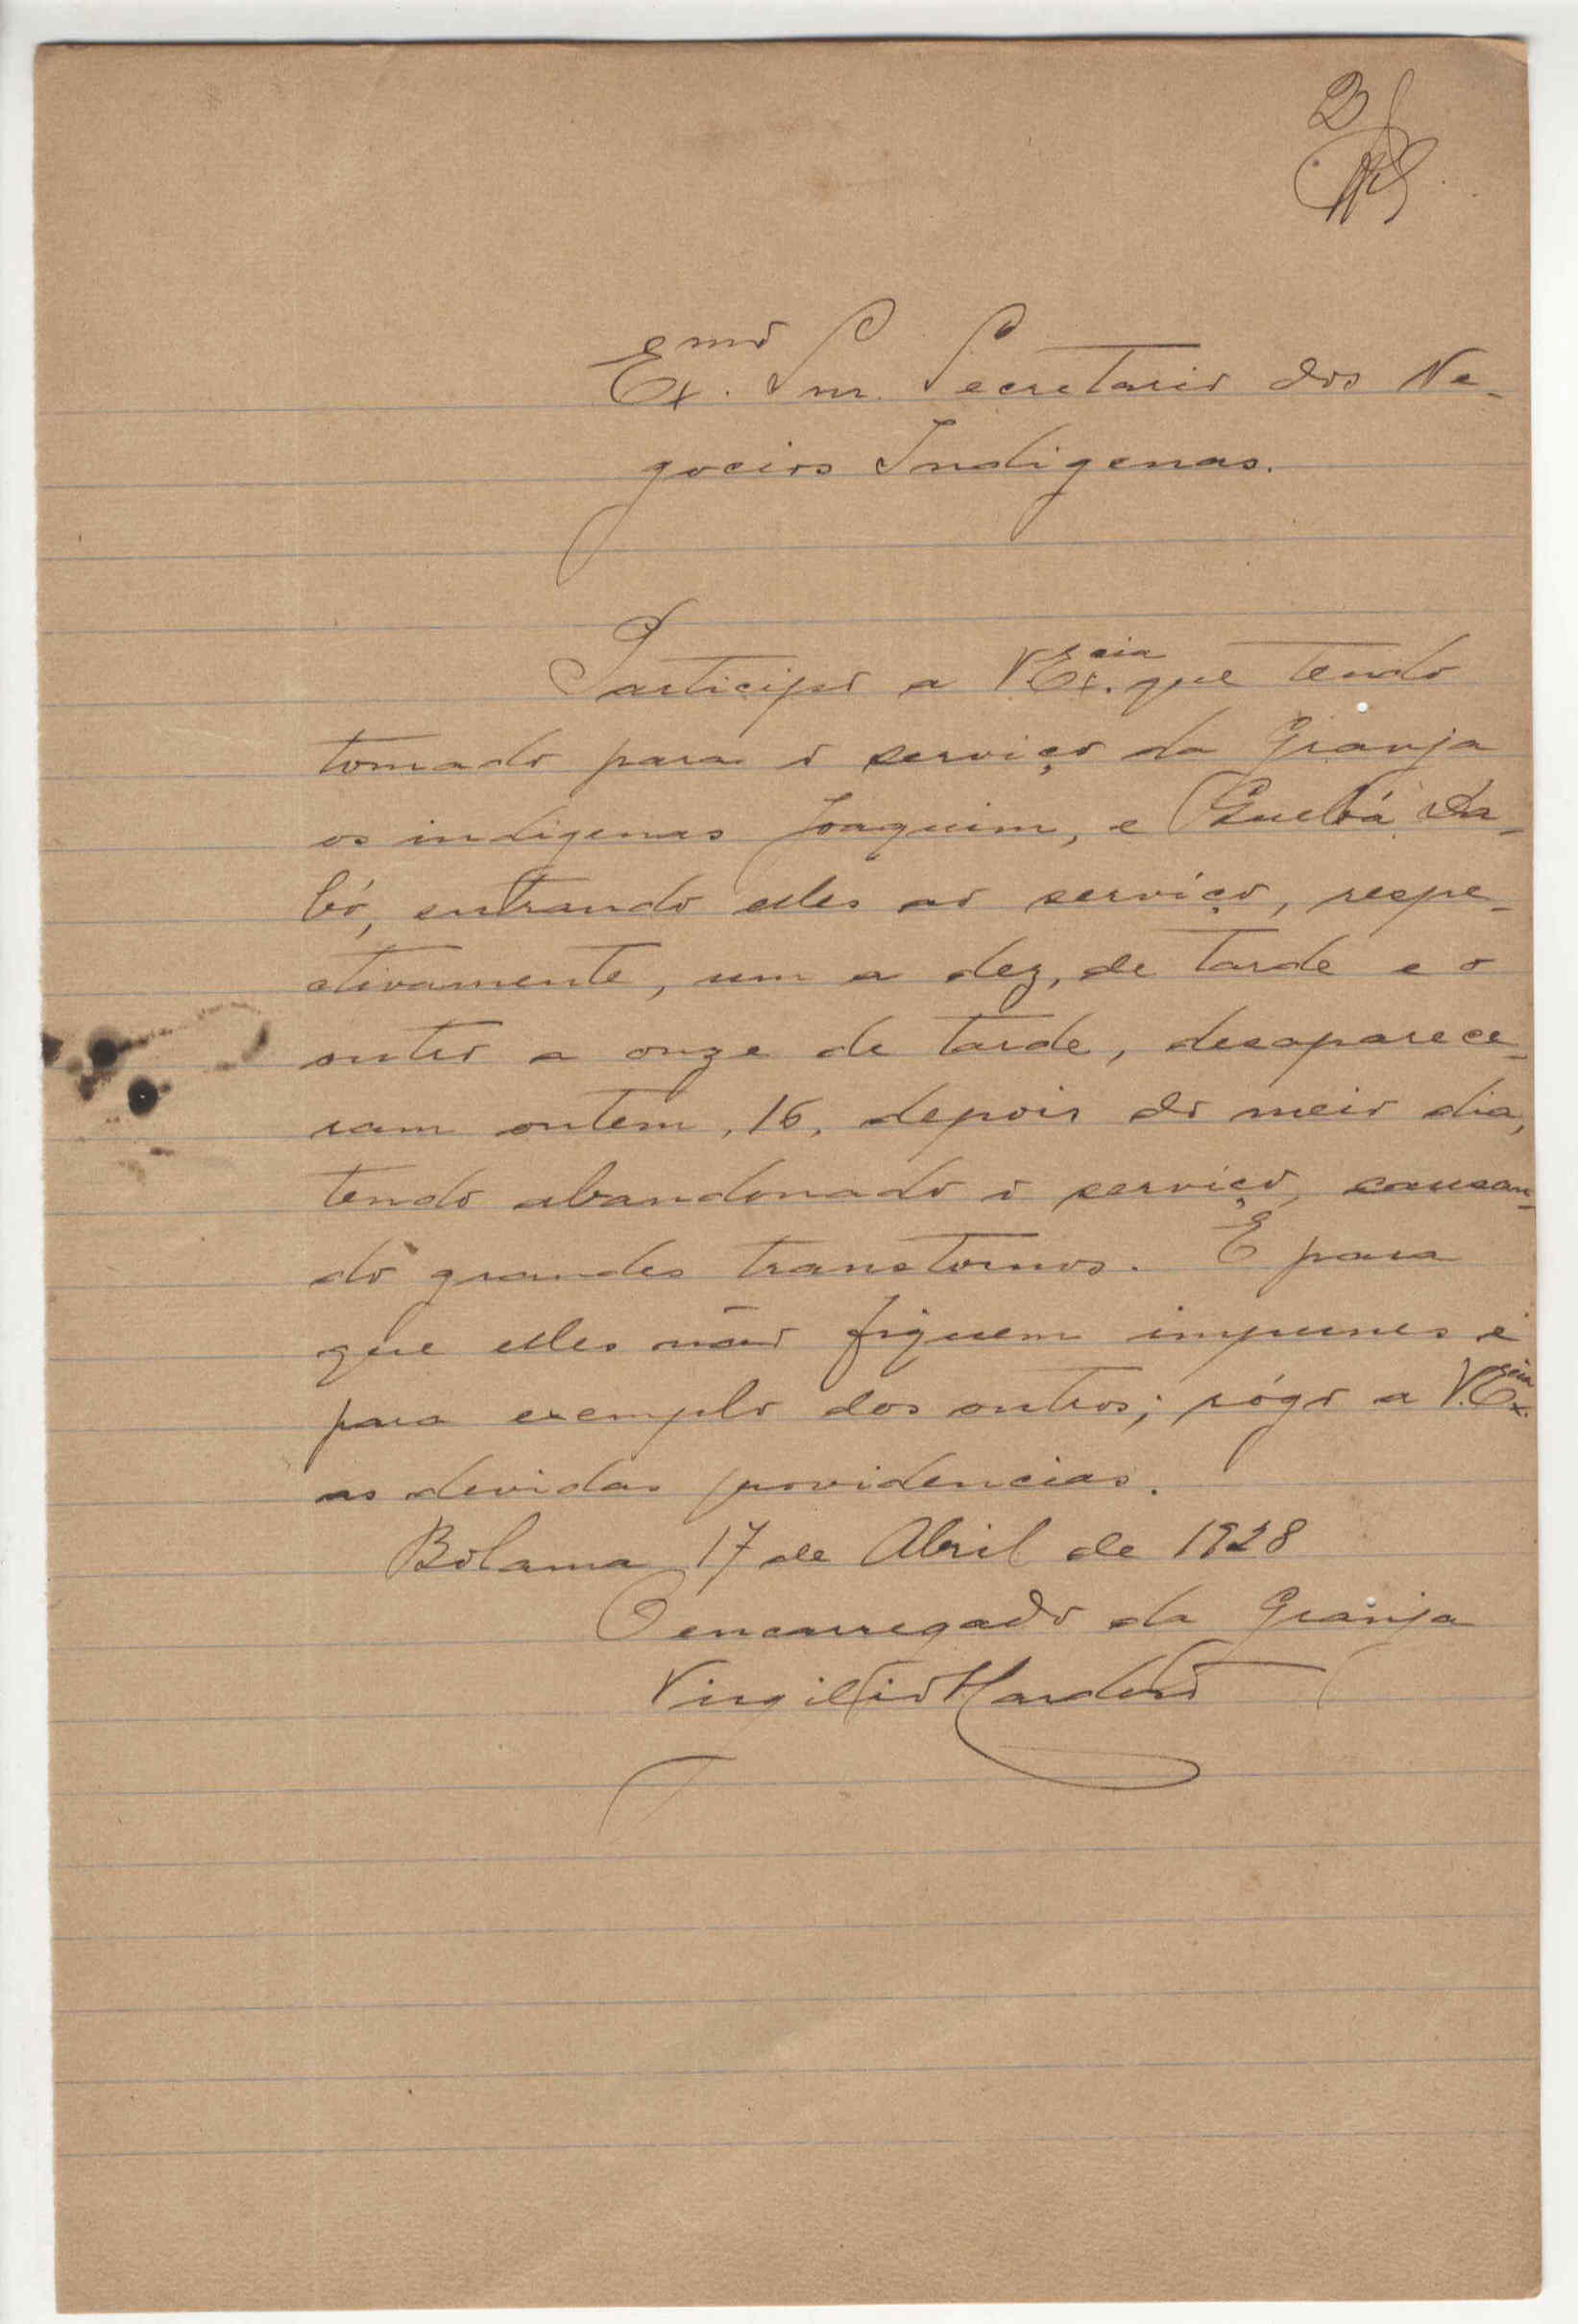 2
Ex.mo Snr. Secretario dos Ne-
gocios Indigenas.
Participo a V.Ex.cia que tendo
tomado para o serviço da Granja
os indigenas Joaquim, e Guebá Sa-
bó, entrando elles ao serviço, respe-
ctivamente, um a dez, de tarde e o
outro a onze de tarde, desaparece-
ram ontem, 16, depois do meio dia,
tendo abandonado o serviço, causan-
do grandes transtornos. E para
que elles não fiquem impunes e
para exemplo dos outros; rógo a V.Ex.cia
as devidas providencias.
Bolama 17 de Abril de 1928
O encarregado da Granja
Virgilio